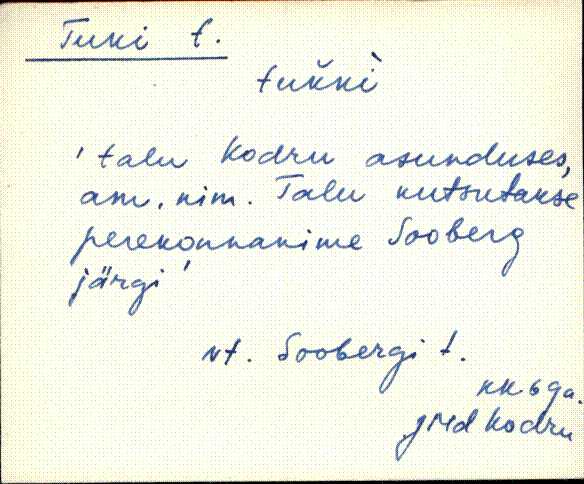 Tuki t.
tuǩkì
'talu Kodru asunduses,
am. nim. Talu kutsutakse
perekonnanime Sooberg
järgi'
vt. Soobergi t.
KKbga.
JMd Kodru